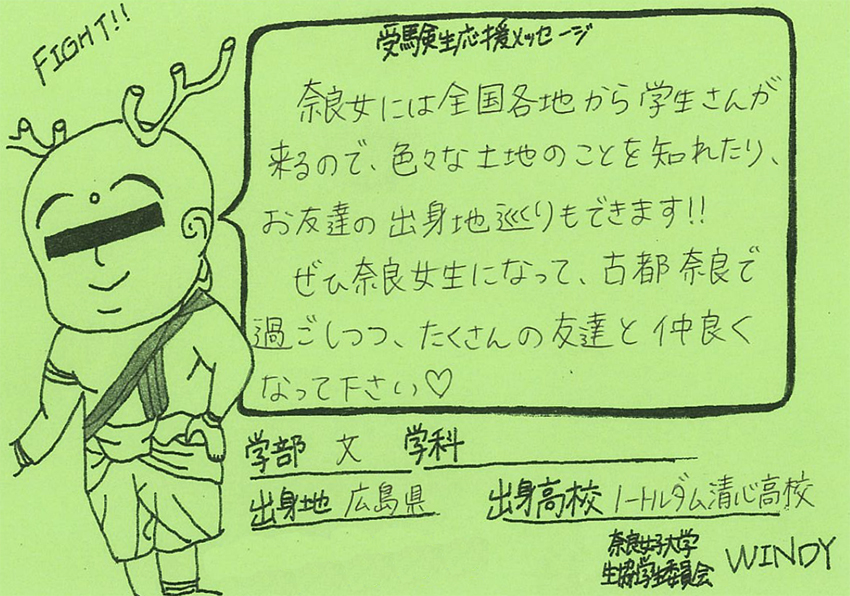 FIGHT!!
受験生応援メッセージ
奈良女には全国各地から学生さんが
来るので、色々な土地のことを知れたり、
お友達の出身地巡りもできます!!
ぜひ奈良女生になって、古都奈良で
過ごしつつ、たくさんの友達と仲良く
なって下さい♡
学部 文 学科
出身地 広島県 出身高校 ノートルダム清心高校
奈良女子大学
生協学生委員会 WINDY